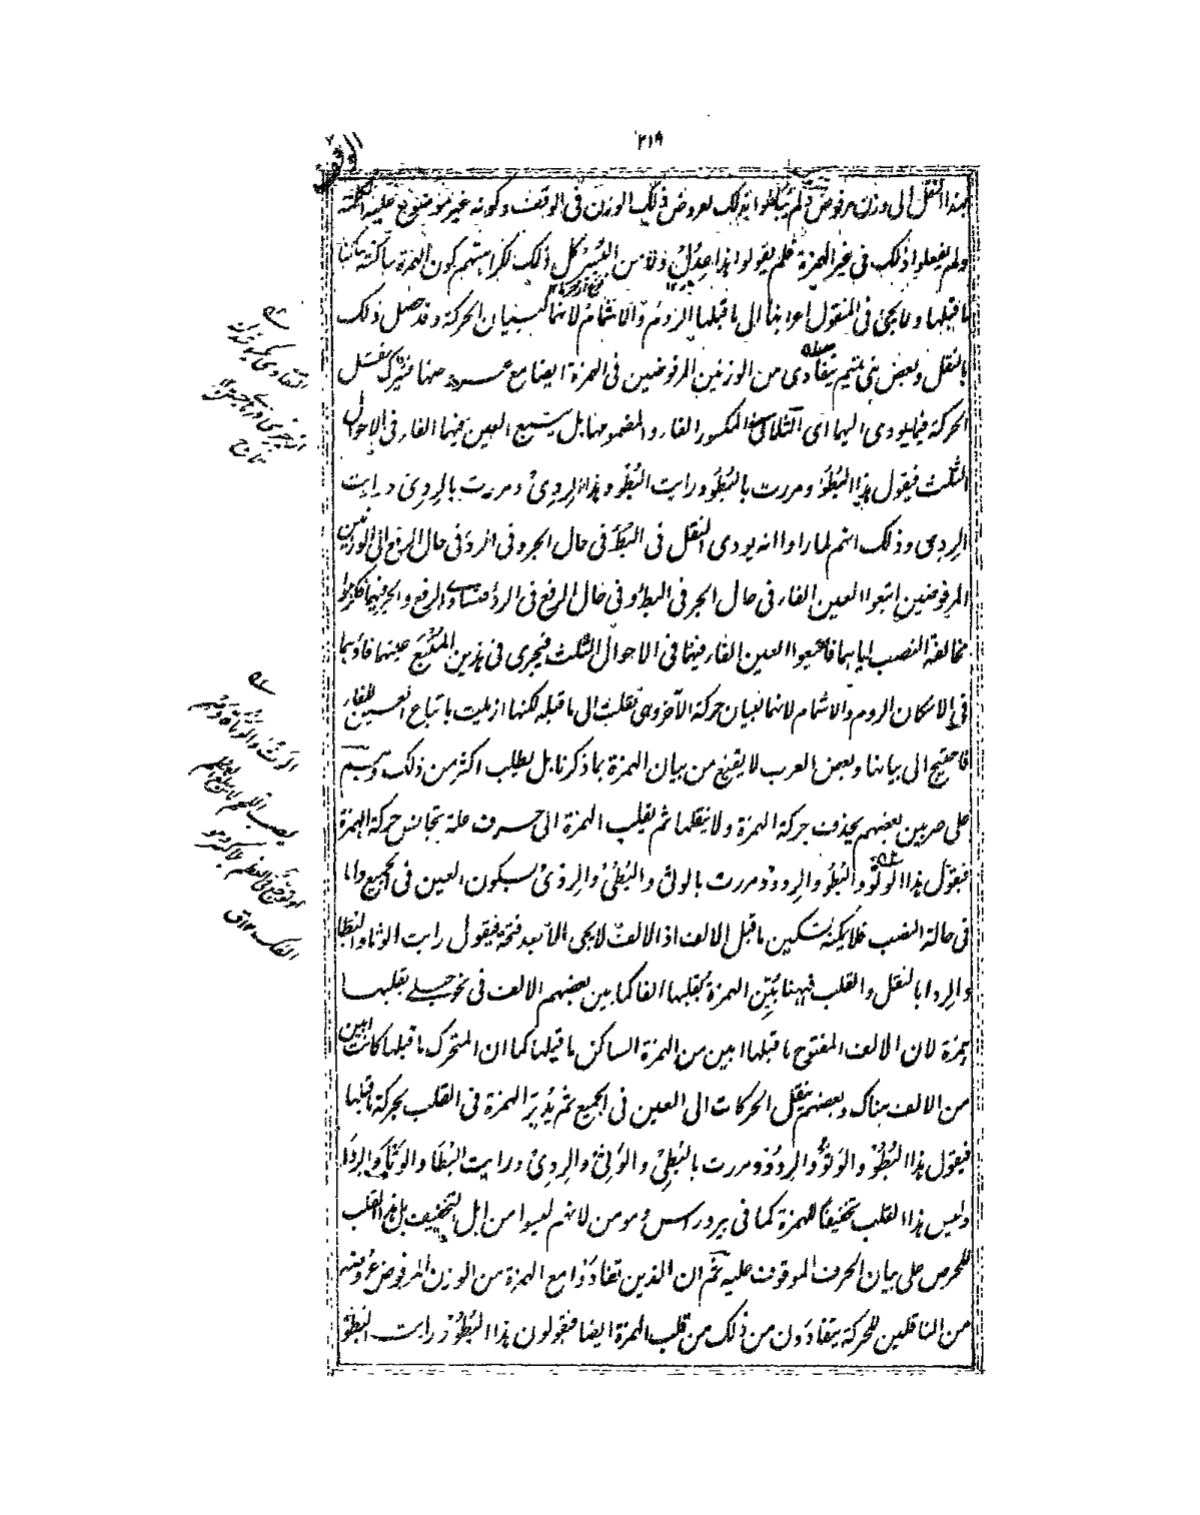 ٢١٩
الوقف
هذا النقل الى وزن مرفوض لم يبالوا بذلك لعروض ذلك الوزن فى الوقف وكونه غير موضوع عليه الكلمة
ولم يفعلوا ذلك فى غير الهمزة فلم يقولوا هذا عِدُلْ ولا من البُسِرْ كل ذلك لكراهتهم كون الهمزة ساكنة ساكنا
ما قبلها ولا يجئ فى المنقول اعرابها الى ما قبلها الروم والاشمام لانهما لبيان الحركة وقد حصل ذلك
بالنقل وبعض بنى تميم يتفادى من الوزنين المرفوضين فى الهمزة ايضا مع عروضهما فيترك نقل
الحركة فيما يودى اليهما اى الثلاثى المكسور الفاء والمضمومها بل يتبع العين فيها الفاء فى الاحوال
الثلث فيقول هذا البُطُؤ ومررت بالبُطُؤ ورايت البُطُؤ وهذا الرِدِئ ومررت بالرِدِئ ورايت
الرِدِئ وذلك انهم لما راوا انه يودى النقل فى البطؤ فى حال الجر وفى الردء فى حال الرفع الى الوزنين
المرفوضين اتبعوا العين الفاء فى حال الجر فى البطؤ وفى حال الرفع فى الردء فتساوى الرفع والجر فيهما فكرهوا
مخالفة النصب اياهما فاتبعوا العين الفاء فيهما فى الاحوال الثلث فيجرى فى هذين المتبع عينهما فاؤهما
فى الاسكان الروم والاشمام لانهما لبيان حركة الآخر وهى نقلت الى ما قبله لكنها ازيلت باتباع العين للفاء
فاحتيج الى بيانها وبعض العرب لا يقنع من بيان الهمزة بما ذكرنا بل يطلب اكثر من ذلك وهم
على ضربين بعضهم يحذف حركة الهمزة ولا ينقلها ثم يقلب الهمزة الى حرف علة تجانس حركة الهمزة
فيقول هذا الوثو والبُطو والرِدو ومررت بالوثى والبُطى والرِدى بسكون العين فى الجميع واما
فى حالة النصب فلا يمكنه تسكين ما قبل الالف اذ الالف لا يجى الا بعد فتحة فيقول رايت الوثا والبطا
والردا بالنقل والقلب فههنا بُيّن الهمزة بقلبها الفا كما بين بعضهم الالف فى نحو حبلى بقلبها
همزة لان الالف المفتوح ما قبلها ابين من الهمزة الساكن ما قبلها كما ان المتحرك ما قبلها كانت ابين
من الالف هناك وبعضهم ينقل الحركات الى العين فى الجميع ثم يدبر الهمزة فى القلب بحركة ما قبلها
فيقول هذا البُطُوْ والوَثُوْ والرِدُوْ ومررت بالبُطِىْ والوَثِىْ والرِدِىْ ورايت البُطَا والوَثَا والرِدَا
وليس هذا القلب تخفيفا للهمزة كما فى بير وراس ومومن لانهم ليسوا من اهل التخفيف بل هذا القلب
للحرص على بيان الحرف الموقوف عليه ثم ان الذين تفادَوْا مع الهمزة من الوزن المرفوض عروضه
من الناقلين للحركة يتفادَون من ذلك من قلب الهمزة ايضا فيقولون هذا البُطُوْ ورايت البُطُوْ